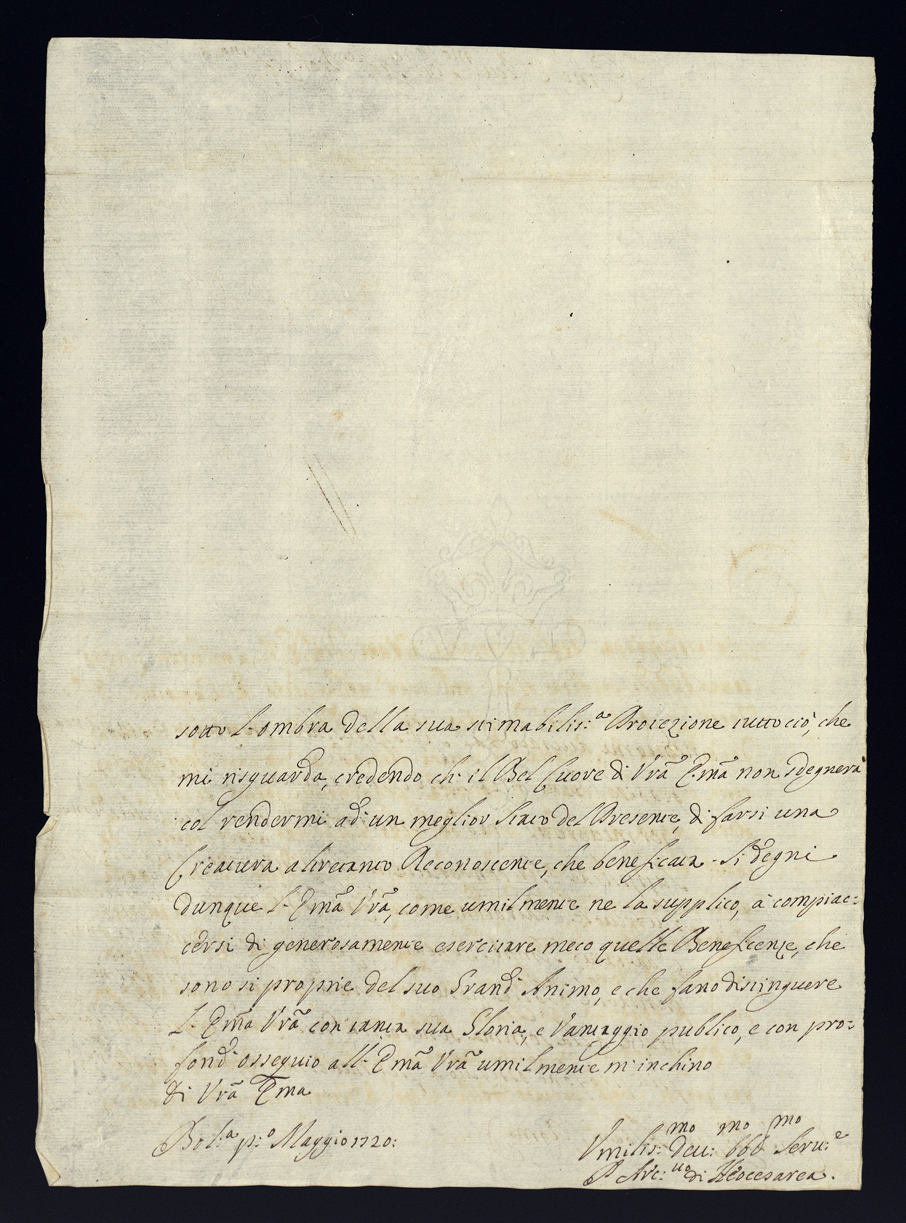 sotto l'ombra della sua stimabilis:ᵃ Protezione tutto ciò, che
mi risguarda, credendo ch' il Bel Cuore di Vrã Emã non sdegnerà
col rendermi ad' un meglior stato del Presente, di farsi una
Creatura altretanto Reconoscente, che beneficata. Si degni
dunque l'Emã Vrã, come umilmente ne la supplico, à compiac=
cersi di generosamente esercitare meco quelle Beneficenze, che
sono si proprie del suo Grand' Animo, e che fano distinguere
l'Emã Vrã con tanta sua Gloria, e Vantaggio publico, e con pro=
fond' ossequio all' Emã Vrã umilmente m' inchino
di Vrã Emã
Bol:ᵃ p:ᵒ Maggio 1720:
Vmilis:ᵐᵒ deu:ᵐᵒ obb:ᵐᵒ Seru:ᵉ
Arc:ᵘᵒ di Neocesarea.